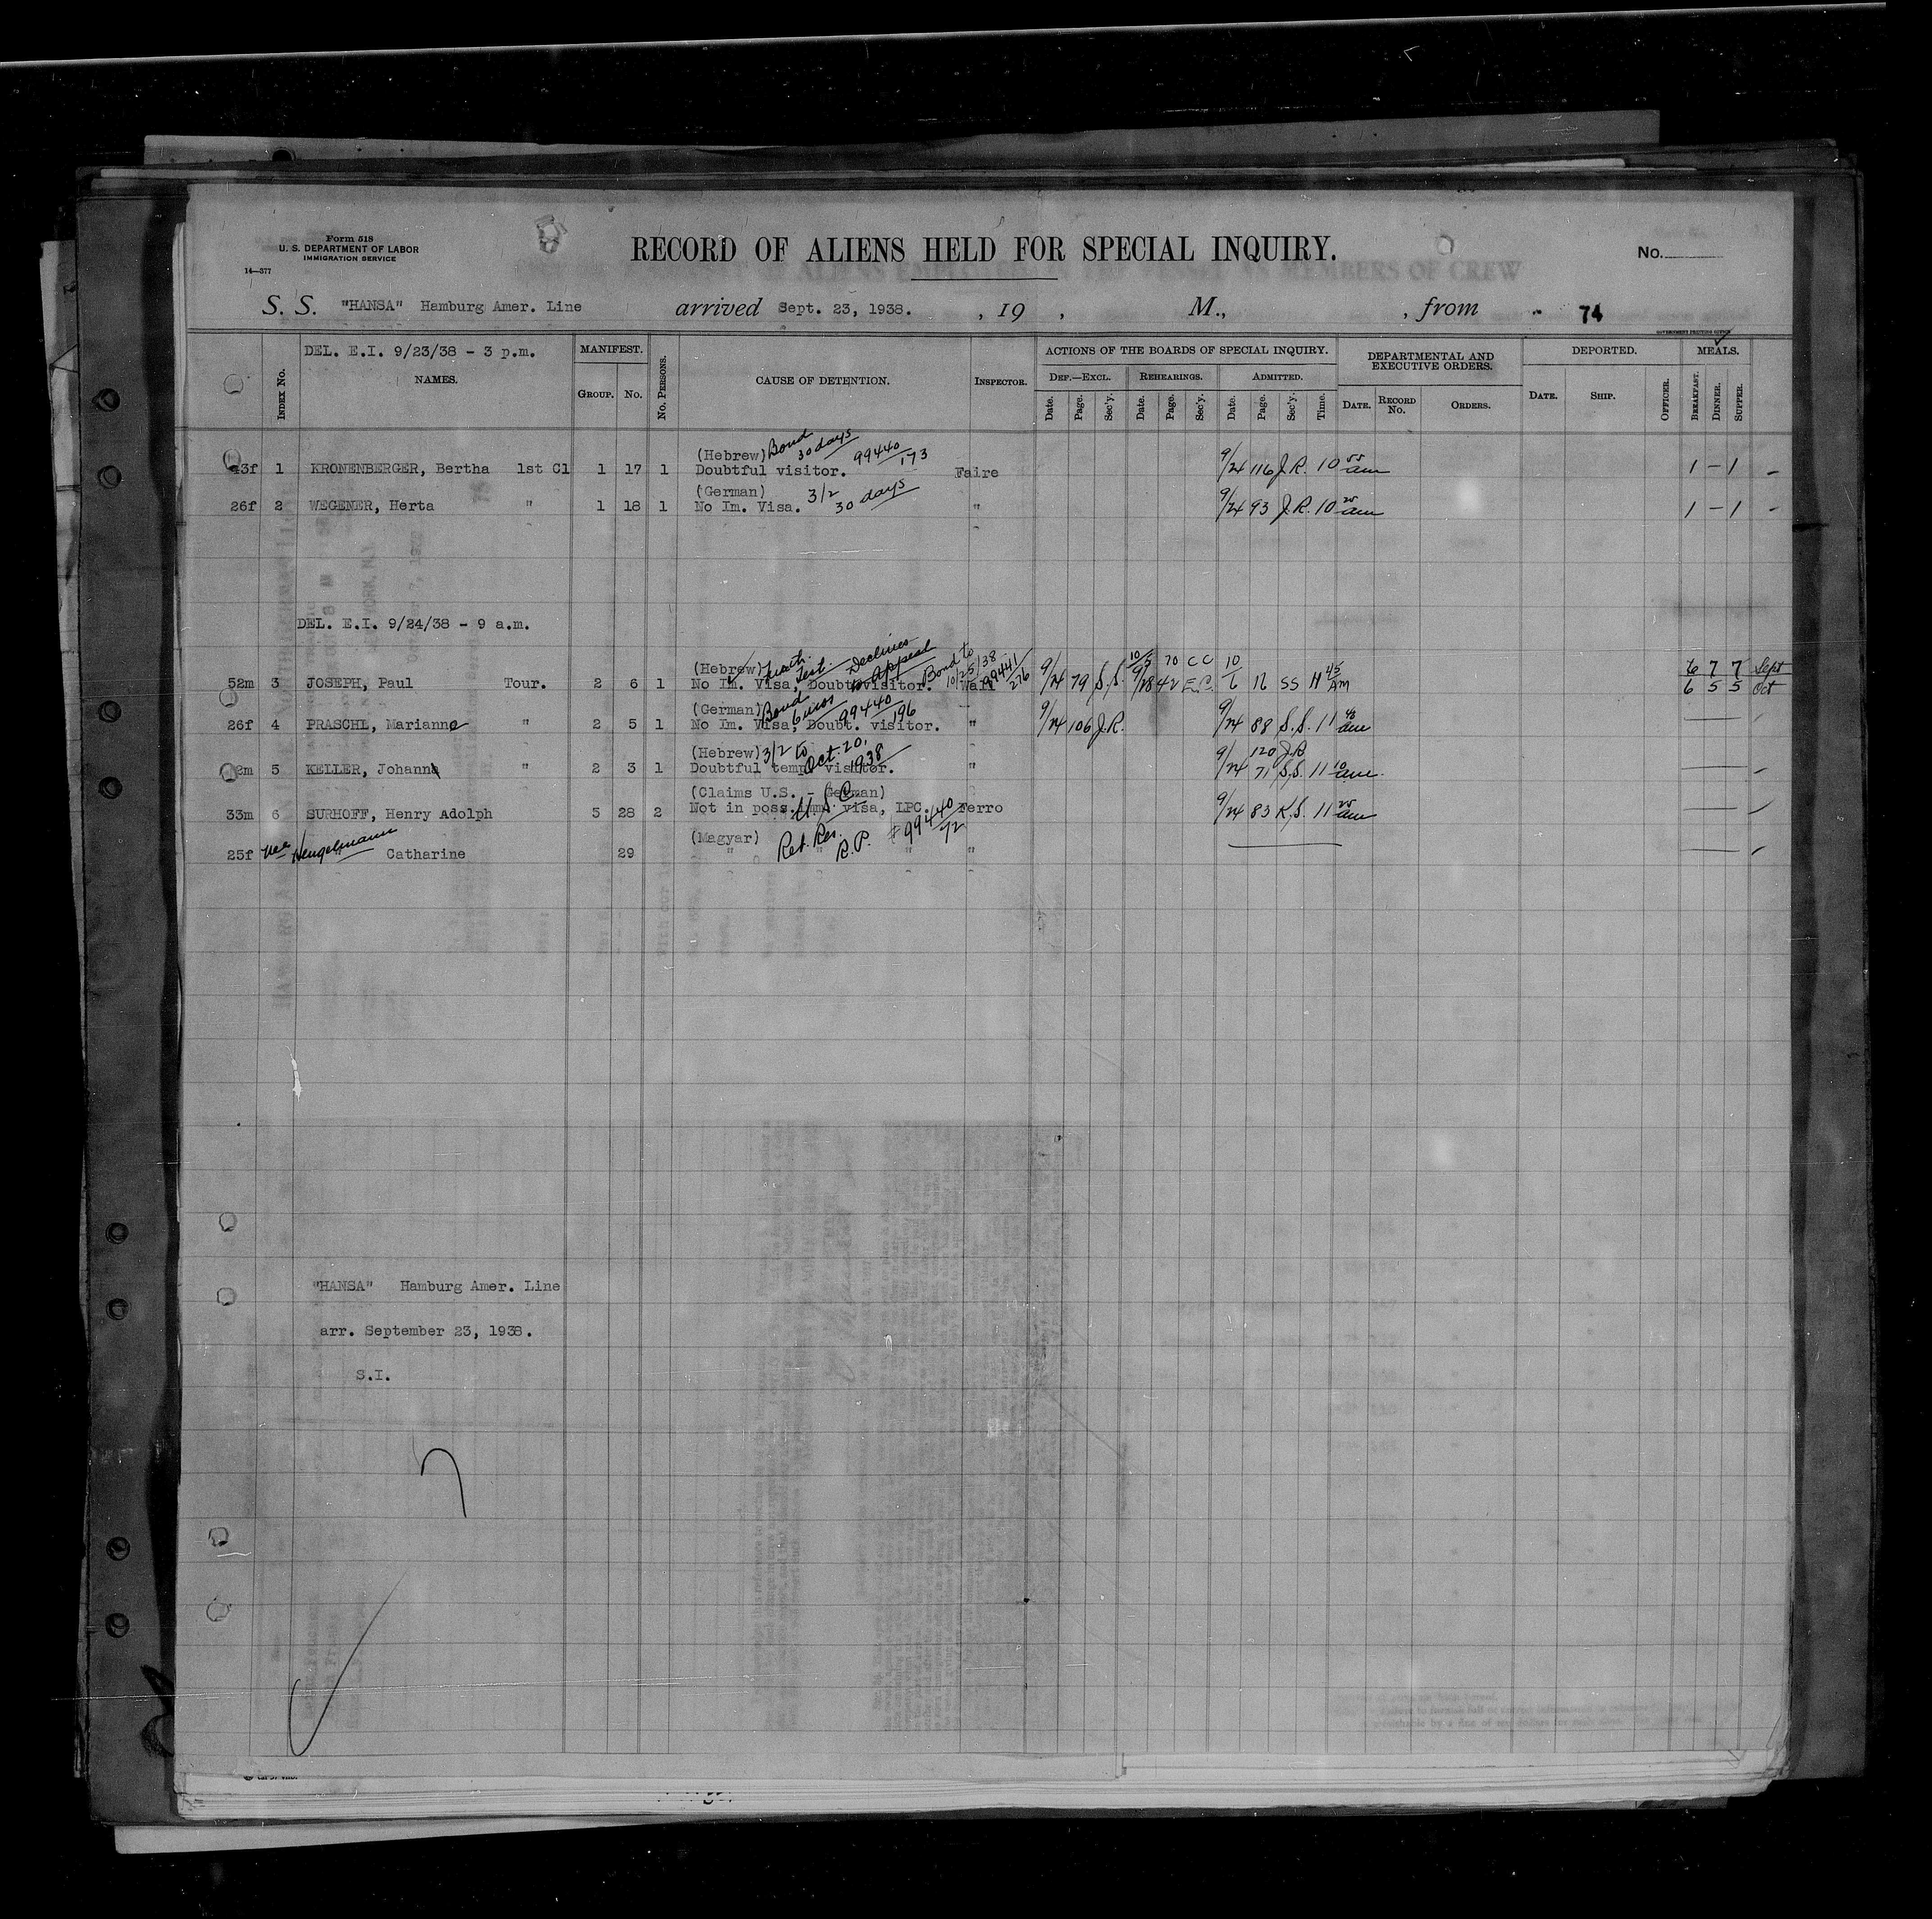 Form 518
U. S. DEPARTMENT OF LABOR
IMMIGRATION SERVICE
14—577
RECORD OF ALIENS HELD FOR SPECIAL INQUIRY.
No.
S. S. "HANSA" Hamburg Amer. Line arrived Sept. 23, 1938. , 19 , M., , from 74
GOVERNMENT PRINTING OFFICE
Index No.
DEL. E.I. 9/23/38 - 3 p.m.
NAMES.
MANIFEST.
Group. No.
No. Persons.
CAUSE OF DETENTION.
Inspector.
ACTIONS OF THE BOARDS OF SPECIAL INQUIRY.
Def.—Excl. Rehearings. Admitted.
Date. Page. Sec'y. Date. Page. Sec'y. Date. Page. Sec'y. Time.
DEPARTMENTAL AND EXECUTIVE ORDERS.
Date. Record No. Orders.
DEPORTED.
Date. Ship. Officer.
MEALS.
Breakfast. Dinner. Supper.
(Hebrew) Bond 30 days 99440/173
43f 1 KRONENBERGER, Bertha 1st Cl 1 17 1 Doubtful visitor. Faire 9/24 116 J.R. 10 55 am 1 — 1
(German) 3/2 30 days
26f 2 WEGENER, Herta " 1 18 1 No Im. Visa. " 9/24 93 J.R. 10 25 am 1 — 1
DEL. E.I. 9/24/38 - 9 a.m.
(Hebrew) Test. Declines to Appeal Bond to 10/25/38 99441/276 10/5 70 CC 10 6 7 7 Sept
52m 3 JOSEPH, Paul Tour. 2 6 1 No Im. Visa, Doubt. visitor. 9/24 79 S.S. 9/28 42 E.C. 6 16 SS 11 45 AM 6 5 5 Oct
(German) Bond 6 mos 99440/196
26f 4 PRASCHL, Marianne " 2 5 1 No Im. Visa, Doubt. visitor. " 9/24 106 J.R. 9/24 88 S.S. 11 40 am
(Hebrew) 3/2 to Oct. 20, 1938 120 J.R.
5 KELLER, Johanna " 2 3 1 Doubtful temp. visitor. " 9/24 71 S.S. 11 10 am.
(Claims U.S. - German) U.S.C.
33m 6 SURHOFF, Henry Adolph 5 28 2 Not in poss. imm. visa, LPC. Ferro 9/24 83 K.S. 11 25 am
(Magyar) Ret. Res. R.P. #99440/72
25f nee Hengelmann Catharine 29 " " " "
"HANSA" Hamburg Amer. Line
arr. September 23, 1938.
S.I.